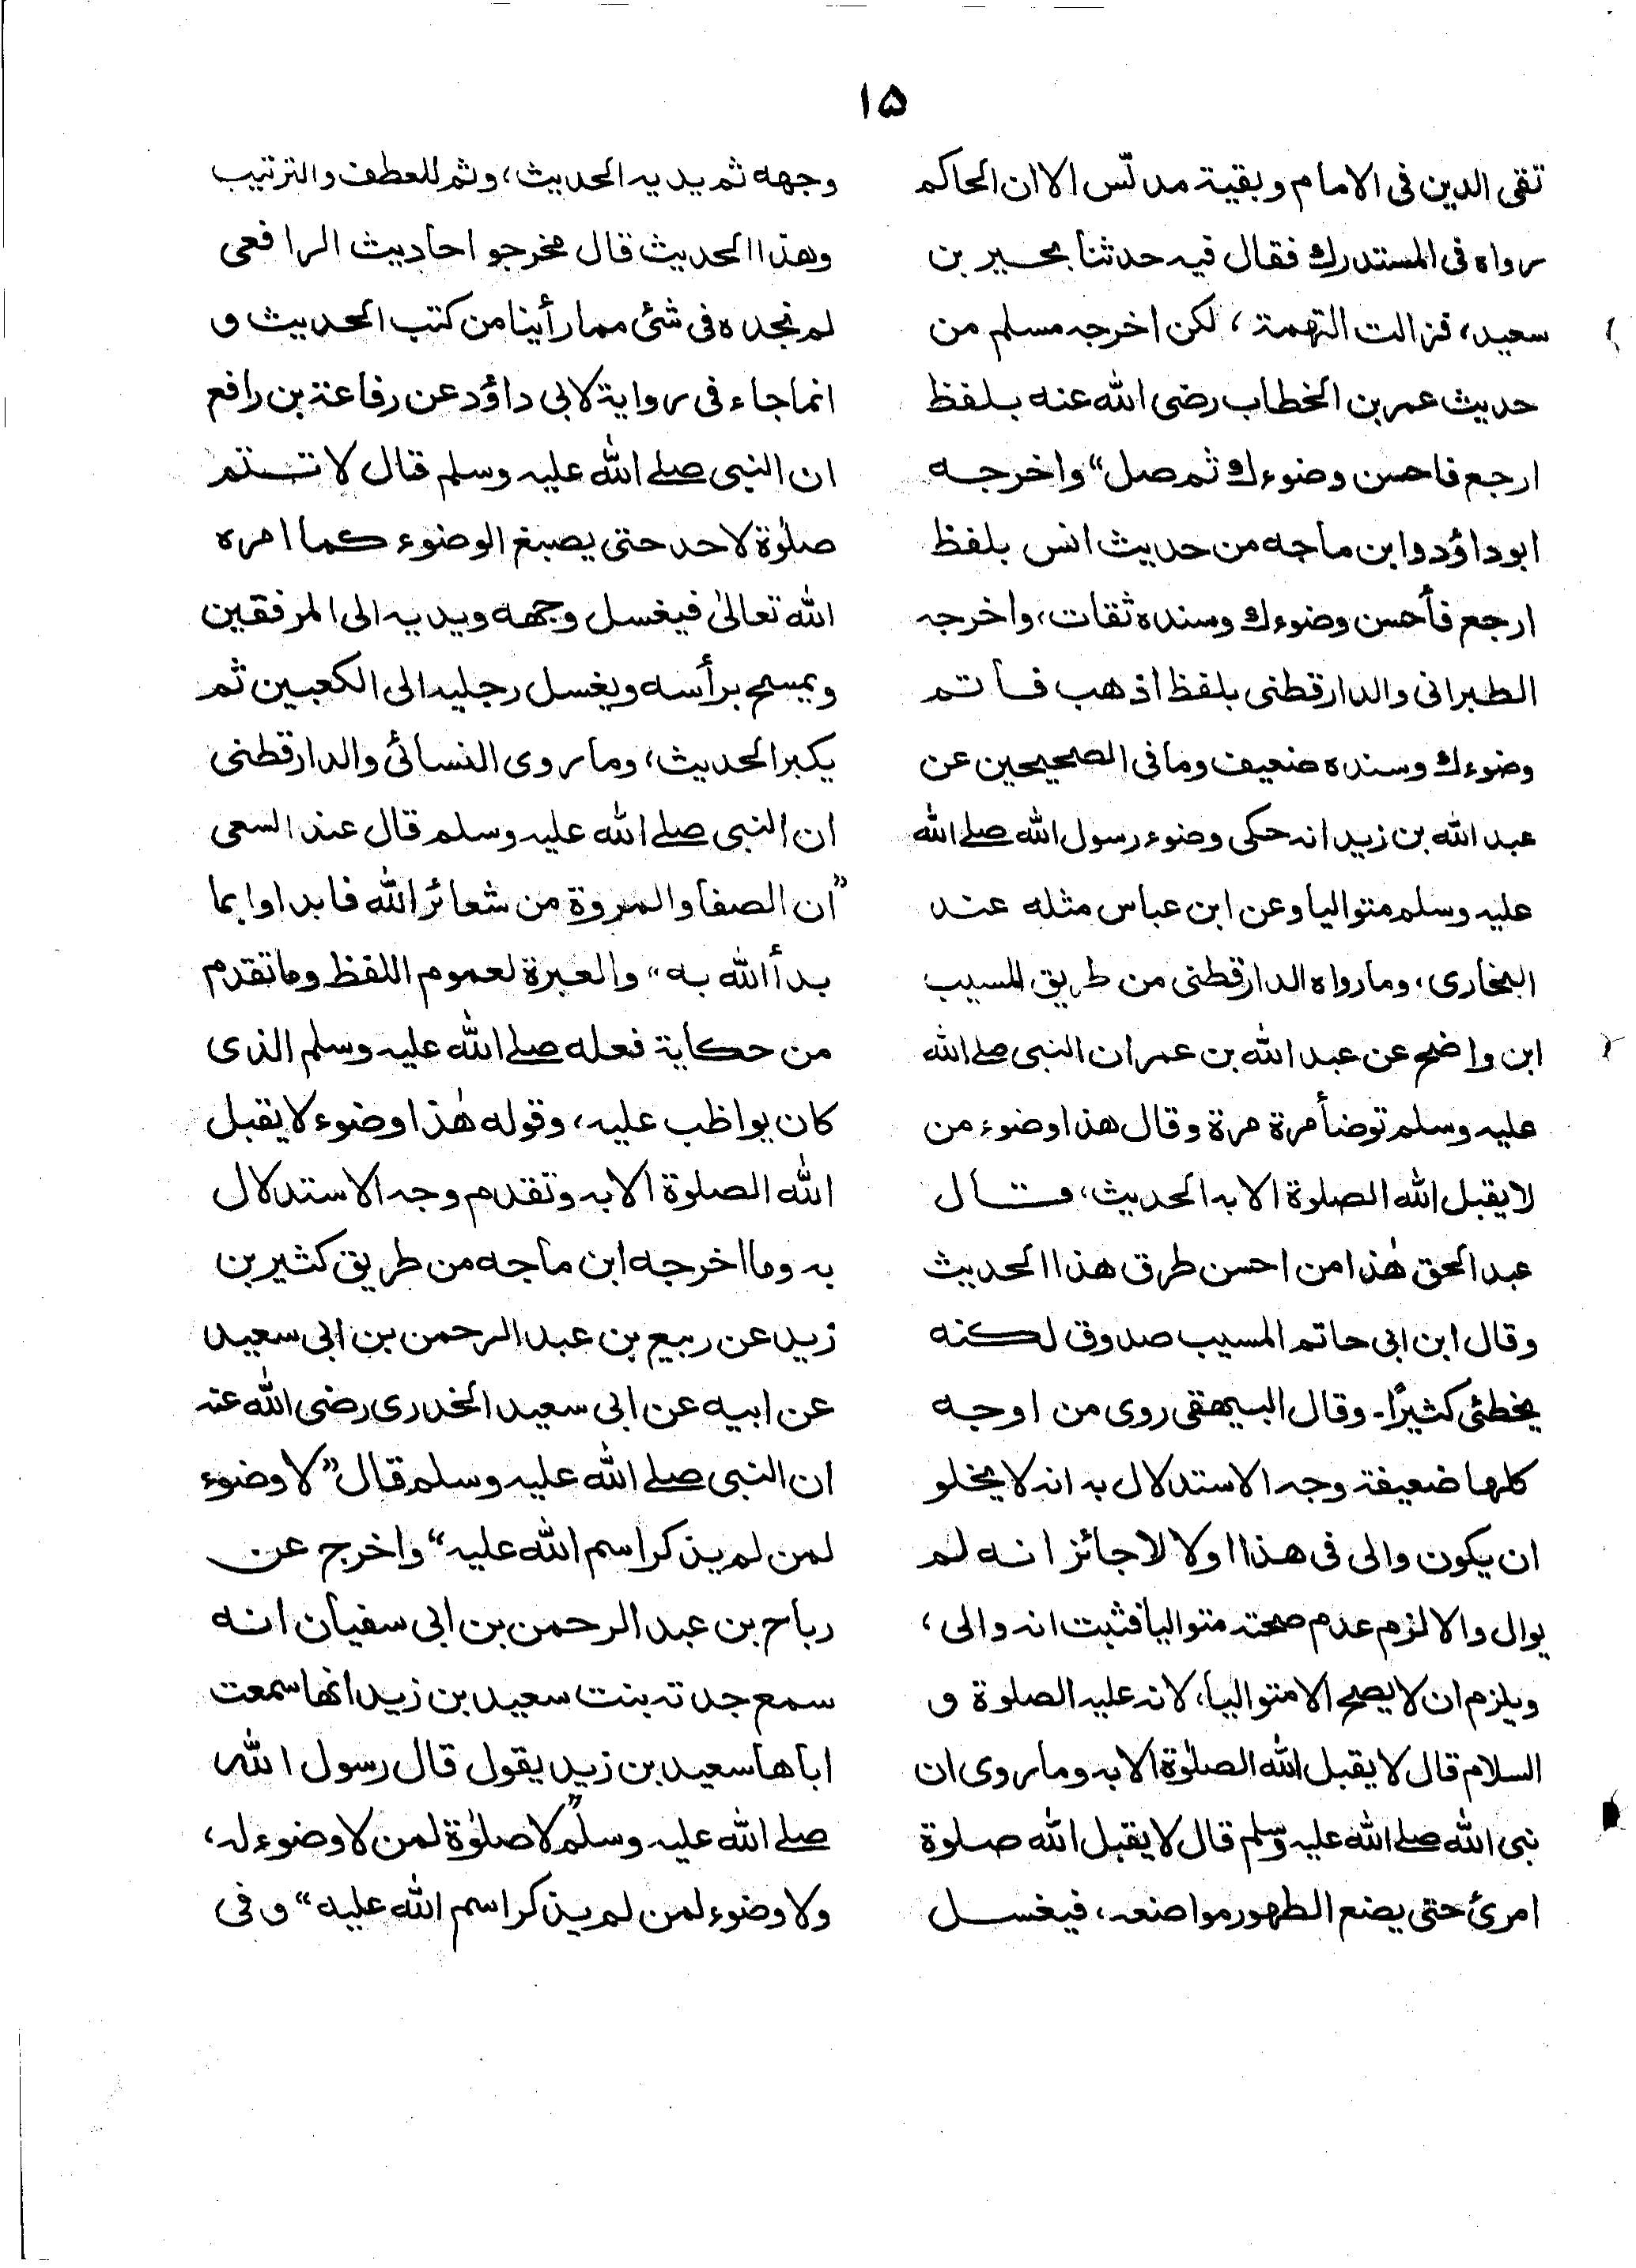 ١٥
تقى الدين فى الامام وبقية مدلّس الا ان الحاكم
رواه فى المستدرك فقال فيه حدثنا بحـير بن
سعيد، فزالت التهمة، لكن اخرجه مسلم من
حديث عمر بن الخطاب رضى الله عنه بلفظ
ارجع فاحسن وضوءك ثم صل" واخرجه
ابوداؤد وابن ماجه من حديث انس بلفظ
ارجع فأحسن وضوءك وسنده ثقات، واخرجه
الطبرانى والدارقطنى بلفظ اذهب فاتم
وضوءك وسنده ضعيف وما فى الصحيحين عن
عبد الله بن زيد انه حكى وضوء رسول الله صلے الله
عليه وسلم متواليا وعن ابن عباس مثله عند
البخارى، وما رواه الدارقطنى من طريق المسيب
ابن واضح عن عبد الله بن عمر ان النبى صلے الله
عليه وسلم توضأ مرة مرة وقال هذا وضوء من
لا يقبل الله الصلوة الا به الحديث، قال
عبد الحق هٰذا من احسن طرق هذا الحديث
وقال ابن ابى حاتم المسيب صدوق لكنه
يخطئى كثيرًا۔ وقال البيهقى روى من اوجه
كلها ضعيفة وجه الاستدلال به انه لا يخلو
ان يكون والى فى هذا اولا لا جائز انه لم
يوال والا لزم عدم صحته متواليا فثبت انه والى،
ويلزم ان لا يصح الا متواليا، لانه عليه الصلوة و
السلام قال لا يقبل الله الصلوٰة الا به وما روى ان
نبى الله صلے الله عليه وسلم قال لا يقبل الله صلوة
امرئ حتى يضع الطهور مواضعه، فيغسل
وجهه ثم يديه الحديث، وثم للعطف والترتيب
وهذا الحديث قال مخرجو احاديث الرافعى
لم نجده فى شئ مما رأينا من كتب الحديث و
انما جاء فى رواية لابى داؤد عن رفاعة بن رافع
ان النبى صلے الله عليه وسلم قال لا تتم
صلوٰة لاحد حتى يصبغ الوضوء كما امره
الله تعالىٰ فيغسل وجهه ويديه الى المرفقين
ويمسح برأسه ويغسل رجليه الى الكعبين ثم
يكبر الحديث، وما روى النسائى والدارقطنى
ان النبى صلے الله عليه وسلم قال عند السعى
"ان الصفا والمروة من شعائر الله فابداوا بما
بدأ الله به" والعبرة لعموم اللفظ وما تقدم
من حكاية فعله صلے الله عليه وسلم الذى
كان يواظب عليه، وقوله هٰذا وضوء لا يقبل
الله الصلوة الا به وتقدم وجه الاستدلال
به وما اخرجه ابن ماجه من طريق كثير بن
زيد عن ربيع بن عبد الرحمن بن ابى سعيد
عن ابيه عن ابى سعيد الخدرى رضى الله عنه
ان النبى صلے الله عليه وسلم قال "لا وضوء
لمن لم يذكر اسم الله عليه" واخرج عن
رباح بن عبد الرحمن بن ابى سفيان انه
سمع جدته بنت سعيد بن زيد انها سمعت
اباها سعيد بن زيد يقول قال رسول الله
صلے الله عليه وسلم "لا صلوٰة لمن لا وضوء له،
ولا وضوء لمن لم يذكر اسم الله عليه" و فى